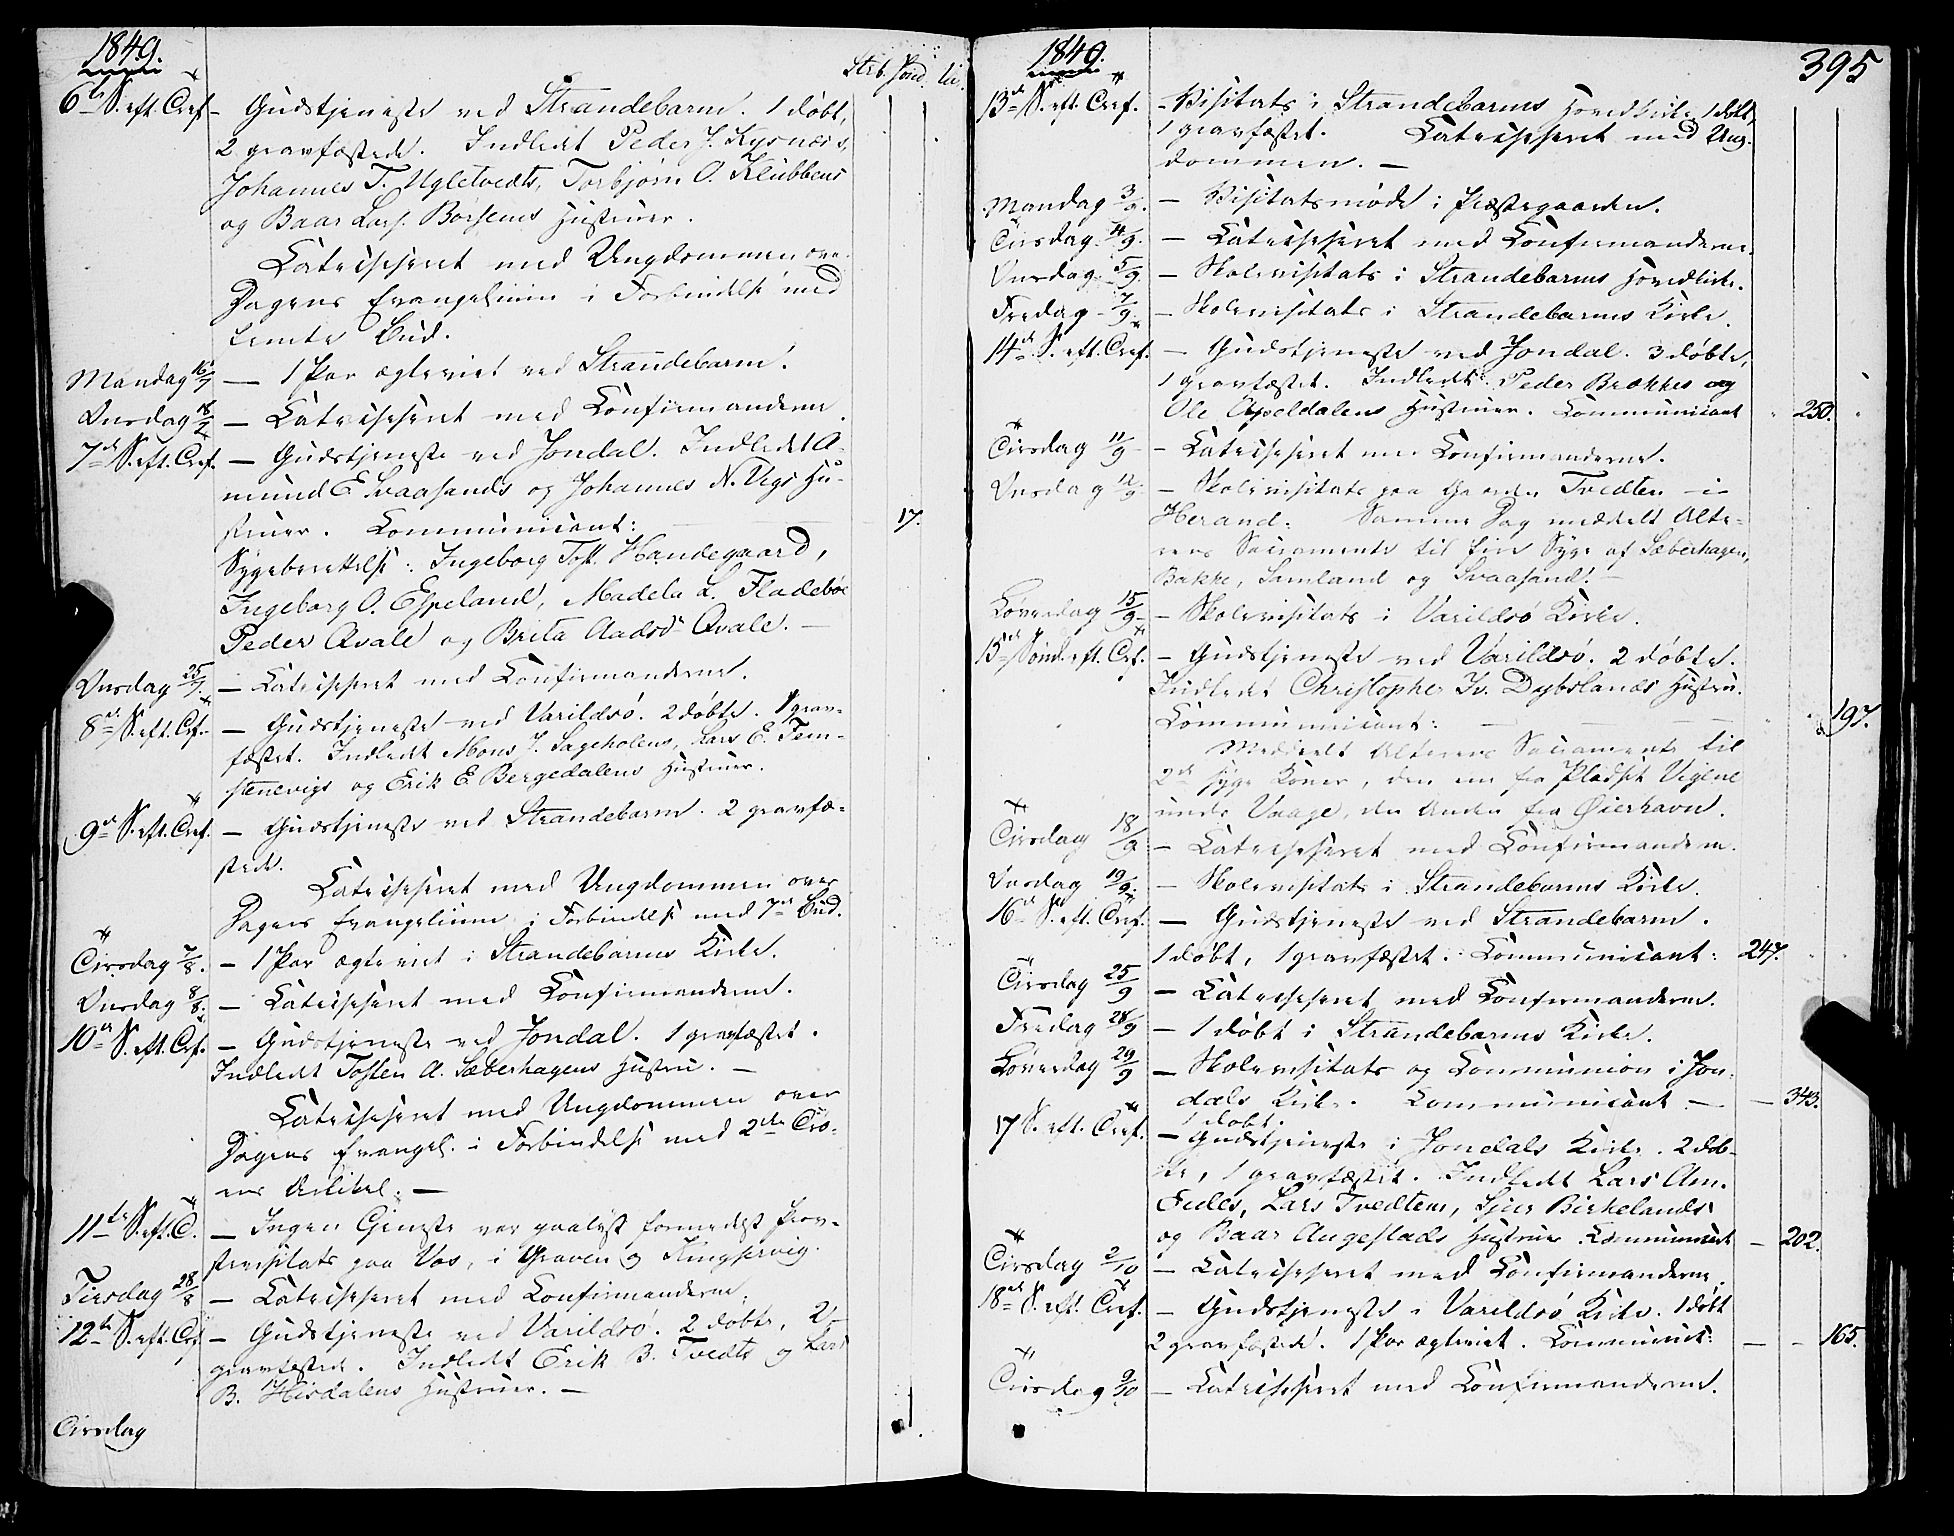 1849.
Strb. Jond.
6te S. eft. Tref. - Gudstjeneste ved Strandebarm. 1 døbt,
2 gravfæstede. Indledt Peder J. Kysnæs's,
Johannes T. Ugletvedts, Torbjørn O. Klubbens
og Baar Lars. Børsems Hustruer.
Catechiseret med Ungdommen over
Dagens Evangelium i Forbindelse med
femte Bud.
Mandag 16/7 — 1 Par ægteviet ved Strandebarm.
Onsdag 18/7 — Catechiseret med Confirmanderne.
7de S. eft. Tref. — Gudstjeneste ved Jondal. Indledt A-
mund E Svaasands og Johannes N. Vigs Hu-
struer. Communicant: 17.
Sygeberettelse: Ingeborg Tost. Handegaard,
Ingeborg O. Espeland, Madela L. Fladebøe
Peder Qvale og Brita Aadsdr Qvale. —
Onsdag 25/7. — Catechiseret med Confirmanderne.
8de S. eft. Trf. — Gudstjeneste ved Varildsø. 2 døbte. 1 grav-
fæstet. Indledt Mons J. Sageholens, Lars E. Tem-
stenevigs og Erik E. Bergedalens Hustruer.
9de S. eft. Tref. — Gudstjeneste ved Strandebarm. 2 gravfæ-
stede.
Catechiseret med Ungdommen over
Dagens Evangelium i Forbindelse med 7de Bud.
Tirsdag 7/8. — 1 Par ægteviet i Strandebarms Kirke.
Onsdag 8/8. — Catechiseret med Confirmanderne.
10de S. eft. Trf. — Gudstjeneste ved Jondal. 1 gravfæstet.
Indledt Tosten A. Sæberhagens Hustru. —
Catechiseret med Ungdommen over
Dagens Evangel. i Forbindelse med 2den Tro-
ens Artikel. —
11te S. eft. T. — Ingen Tjeneste var paalyst formedelst Prov-
stevisitats paa Vos, i Graven og Kingservig.
Tirsdag 28/8 — Catechiseret med Confirmanderne.
12te S. eft. Trf — Gudstjeneste ved Varildsø. 2 døbte, 2
gravfæstede. Indledt Erik B. Tvedts og Lars
B. Hisdalens Hustruer. —
Tirsdag
1849. 395
13de S. eft. Tref. - Visitats i Strandebarms Hovedkirke 1 døbt,
1 gravfæstet. Catechiseret med Ung-
dommen. —
Mandag 3/9. — Visitatsmøde i Præstegaarden.
Tirsdag 4/9. — Catechiseret med Confirmanderne.
Onsdag 5/9 — Skolevisitats i Strandebarms Hovedkirke.
Fredag 7/9 — Skolevisitats i Strandebarms Kirke.
14de S. eft. Tref. — Gudstjeneste ved Jondal. 3 døbte,
1 gravfæstet. Indledt: Peder Brækkes og
Ole Espeldalens Hustruer. Communicant 250.
Tirsdag 11/9 — Catechiseret med Confirmanderne.
Onsdag 12/9 — Skolevisitats paa Gaarden Tvedten i
Herand. Samme Dag meddelt Alte-
rens Sacramente til fire Syge af Sæberhagen,
Bakke, Samland og Svaasand. —
Løverdag 15/9 — Skolevisitats i Varildsø Kirke.
15de Sønd. eft. Trf. — Gudstjeneste ved Varildsø. 2 døbte.
Indledt Christopher Iv. Dybslands Hustru.
Communicant: — 197.
Meddeelt Alterens Sacramente til
2de syge Koner, den ene fra Pladset Vigene
under Vaage, den Anden fra Øierhavn.
Tirsdag 18/9 — Catechiseret med Confirmanderne.
Onsdag 19/9. — Skolevisitats i Strandebarms Kirke.
16de S. eft. Tref. — Gudstjeneste ved Strandebarm.
1 døbt, 1 gravfæstet. Communicant: 247.
Tirsdag 25/9 — Catechiseret med Confirmanderne.
Fredag 28/9 — 1 døbt i Strandebarms Kirke.
Løverdag 29/9 — Skolevisitats og Communion i Jon-
dals Kirke. Communicant — 343.
1 døbt.
17 S. eft. Tref. — Gudstjeneste i Jondals Kirke. 2 døb-
te, 1 gravfæstet. Indledt Lars Am.
Eides, Lars Tvedtens, Sjur Birkelands
og Baar Augestads Hustruer Communicant — 202.
Tirsdag 2/10 — Catechiseret med Confirmanderne.
18de S. eft. Tref. — Gudstjeneste i Varildsø Kirke. 1 døbt
2 gravfæstede. 1 Par ægteviet. Communict: — — 165.
Tirsdag 9/10 — Catechiseret med Confirmanderne.